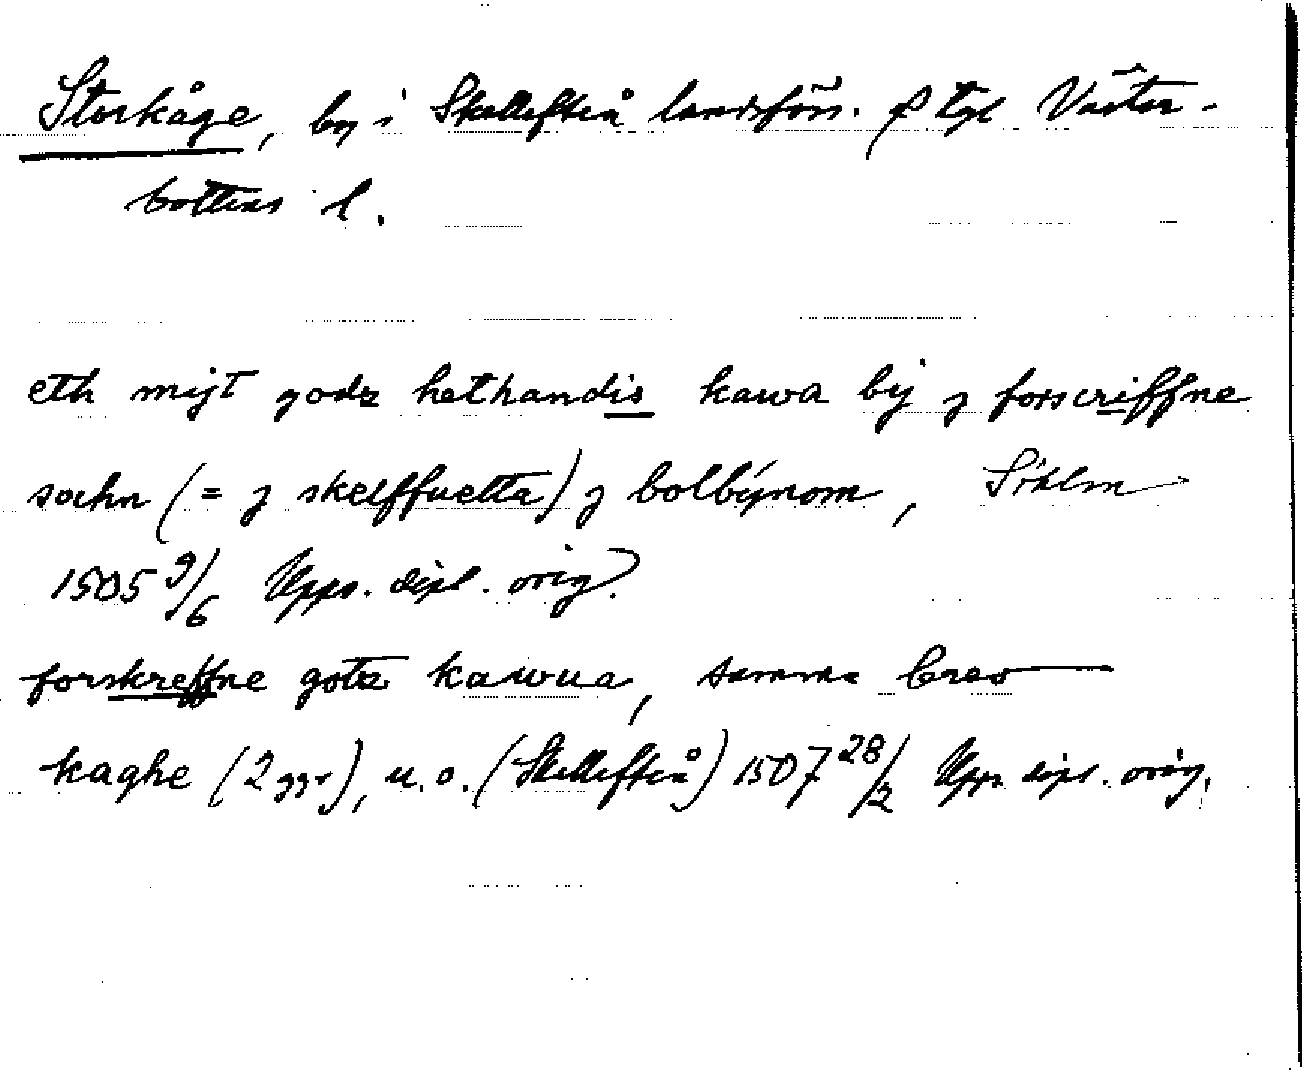 Storkåge, by i Skellefteå landsförs. o tgl Väster-
bottens l.
eth mijt godz hethandis kawa bij j forscriffne
sochn (= j skelffuetta) j bolbýnom, Sthlm
1505 9/6 Upps. dipl. orig.
forskreffne gotz kawua, samma brev
kaghe (2 ggr), u. o. (Skellefteå) 1507 28/2 Upps. dipl. orig.